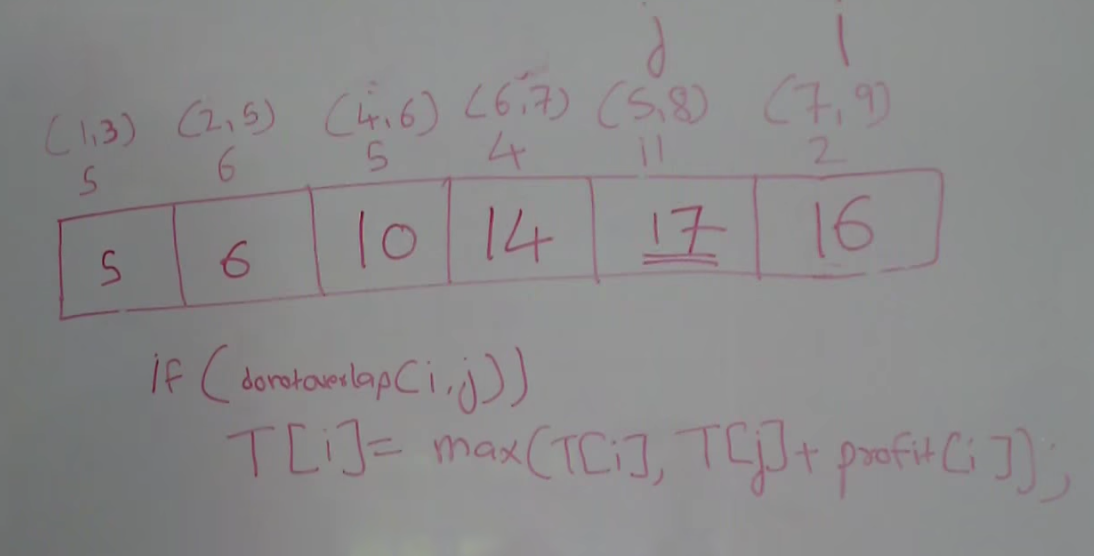 j i
(1,3) (2,5) (4,6) (6,7) (5,8) (7,9)
5 6 5 4 11 2
5 6 10 14 17 16
if (donotoverlap(i,j))
T[i]= max(T[i], T[j]+ profit[i]);